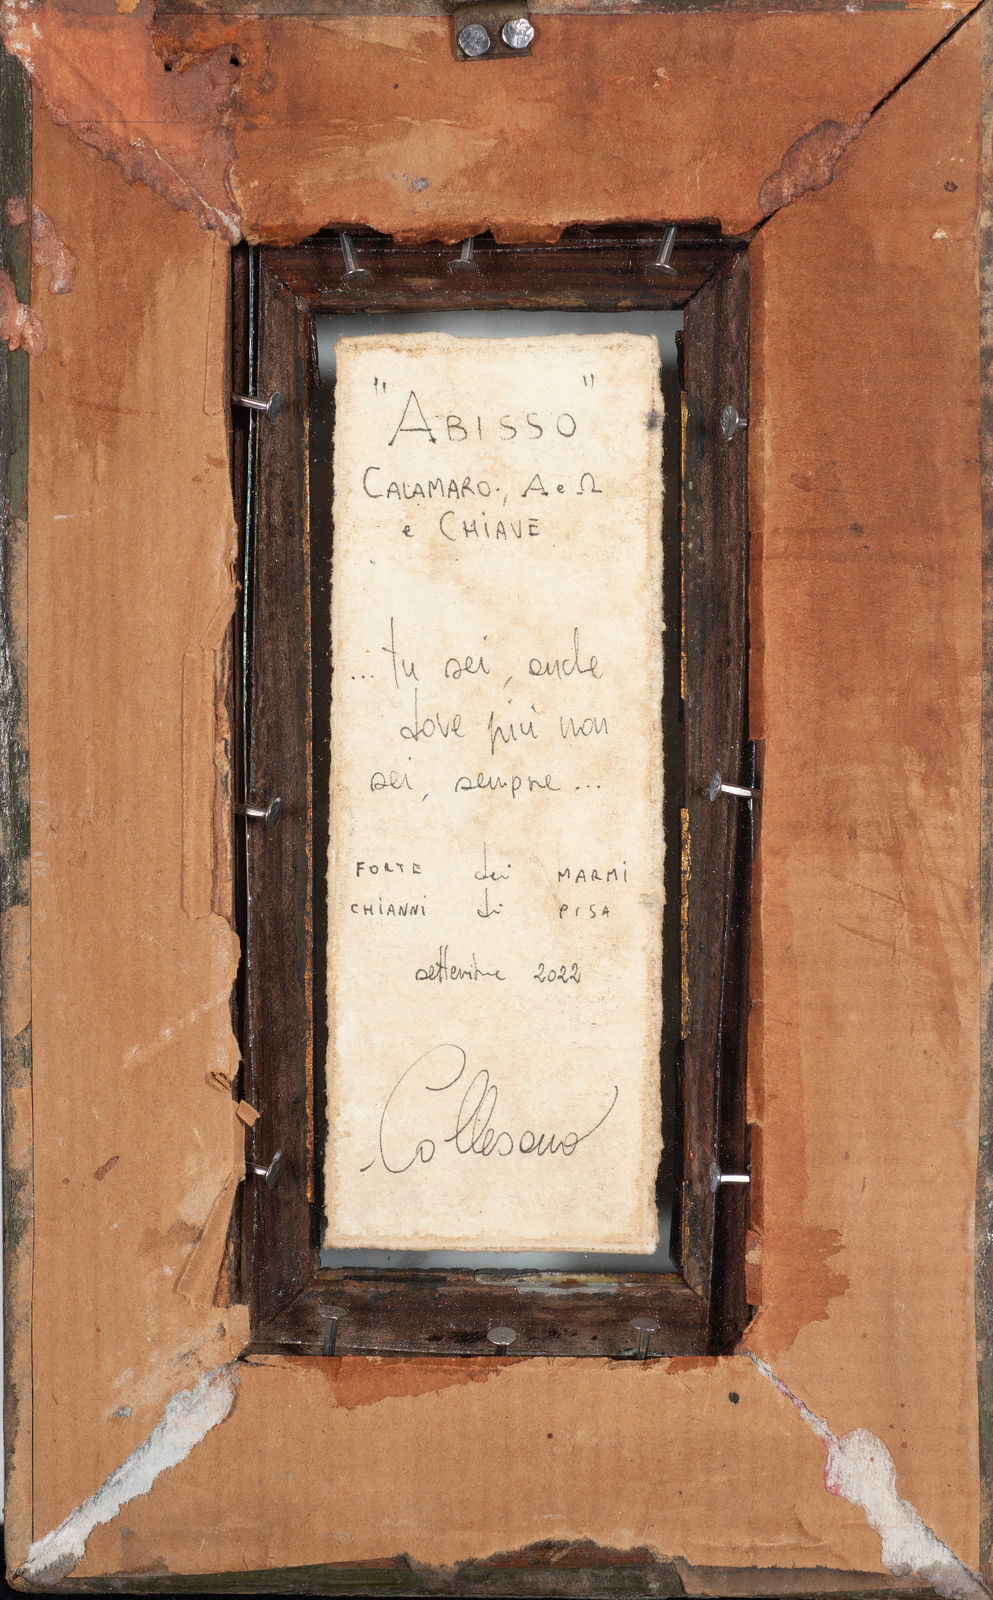 "ABISSO"
CALAMARO, A e Ω
e CHIAVE
... tu sei, anche
dove più non
sei, sempre ...
FORTE dei MARMI
CHIANNI di PISA
settembre 2022
Collesano